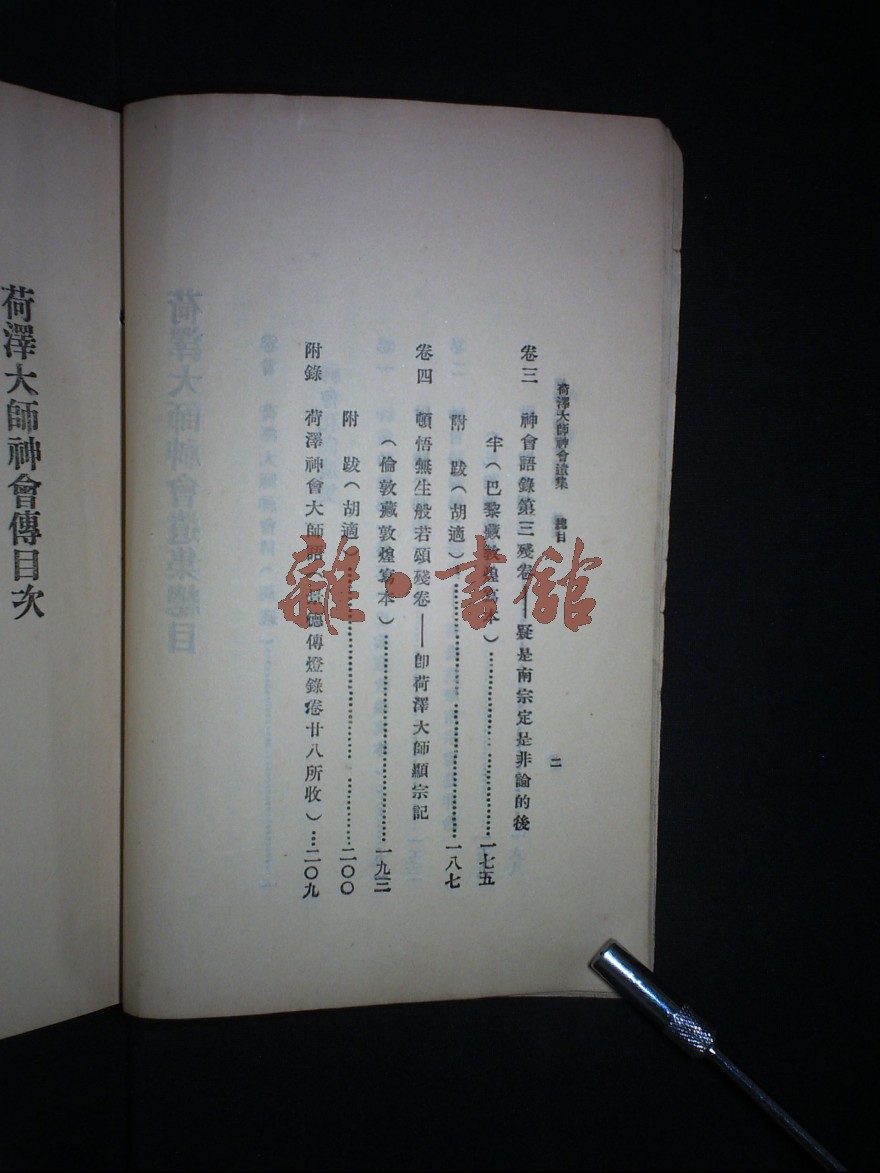 荷澤大師神會遺集 總目 二
卷三 神會語錄第三殘卷——疑是南宗定是非論的後
半(巴黎藏敦煌寫本)…………一七五
附 跋(胡適)…………一八七
卷四 頓悟無生般若頌殘卷——卽荷澤大師顯宗記
(倫敦藏敦煌寫本)…………一九三
附 跋(胡適)…………二〇〇
附錄 荷澤神會大師語(景德傳燈錄卷廿八所收)…二〇九
荷澤大師神會傳目次
雜·書館